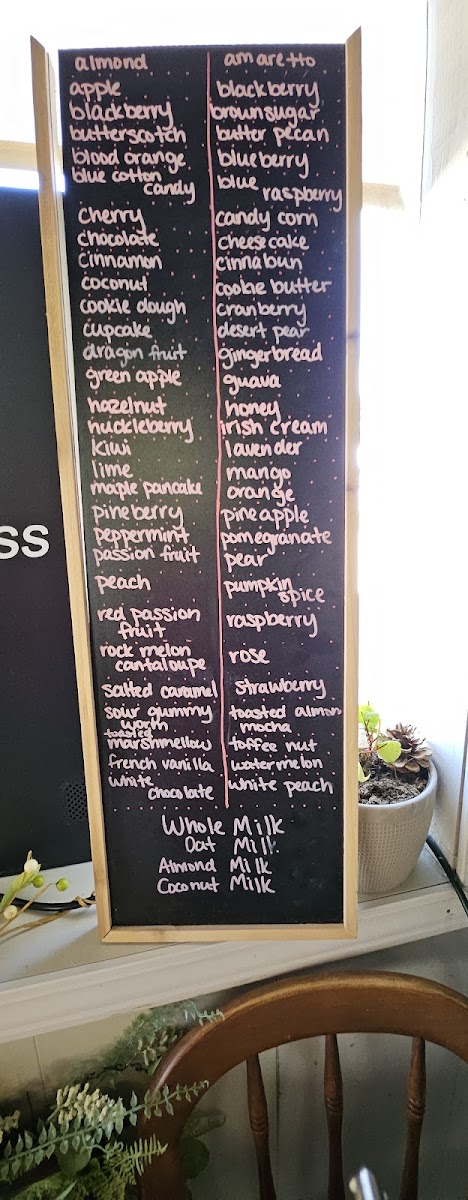 almond
apple
blackberry
butterscotch
blood orange
blue cotton
candy
cherry
chocolate
cinnamon
coconut
cookie dough
cupcake
dragon fruit
green apple
hazelnut
huckleberry
kiwi
lime
maple pancake
pineberry
peppermint
passion fruit
peach
red passion
fruit
rock melon
cantaloupe
salted caramel
sour gummy
worm
toasted
marshmellow
french vanilla
white
chocolate
amaretto
blackberry
brown sugar
butter pecan
blueberry
blue
raspberry
candy corn
cheesecake
cinnabun
cookie butter
cranberry
desert pear
gingerbread
guava
honey
irish cream
lavender
mango
orange
pineapple
pomegranate
pear
pumpkin
spice
raspberry
rose
strawberry
toasted almon
mocha
toffee nut
watermelon
white peach
Whole Milk
Oat Milk
Almond Milk
Coconut Milk
SS